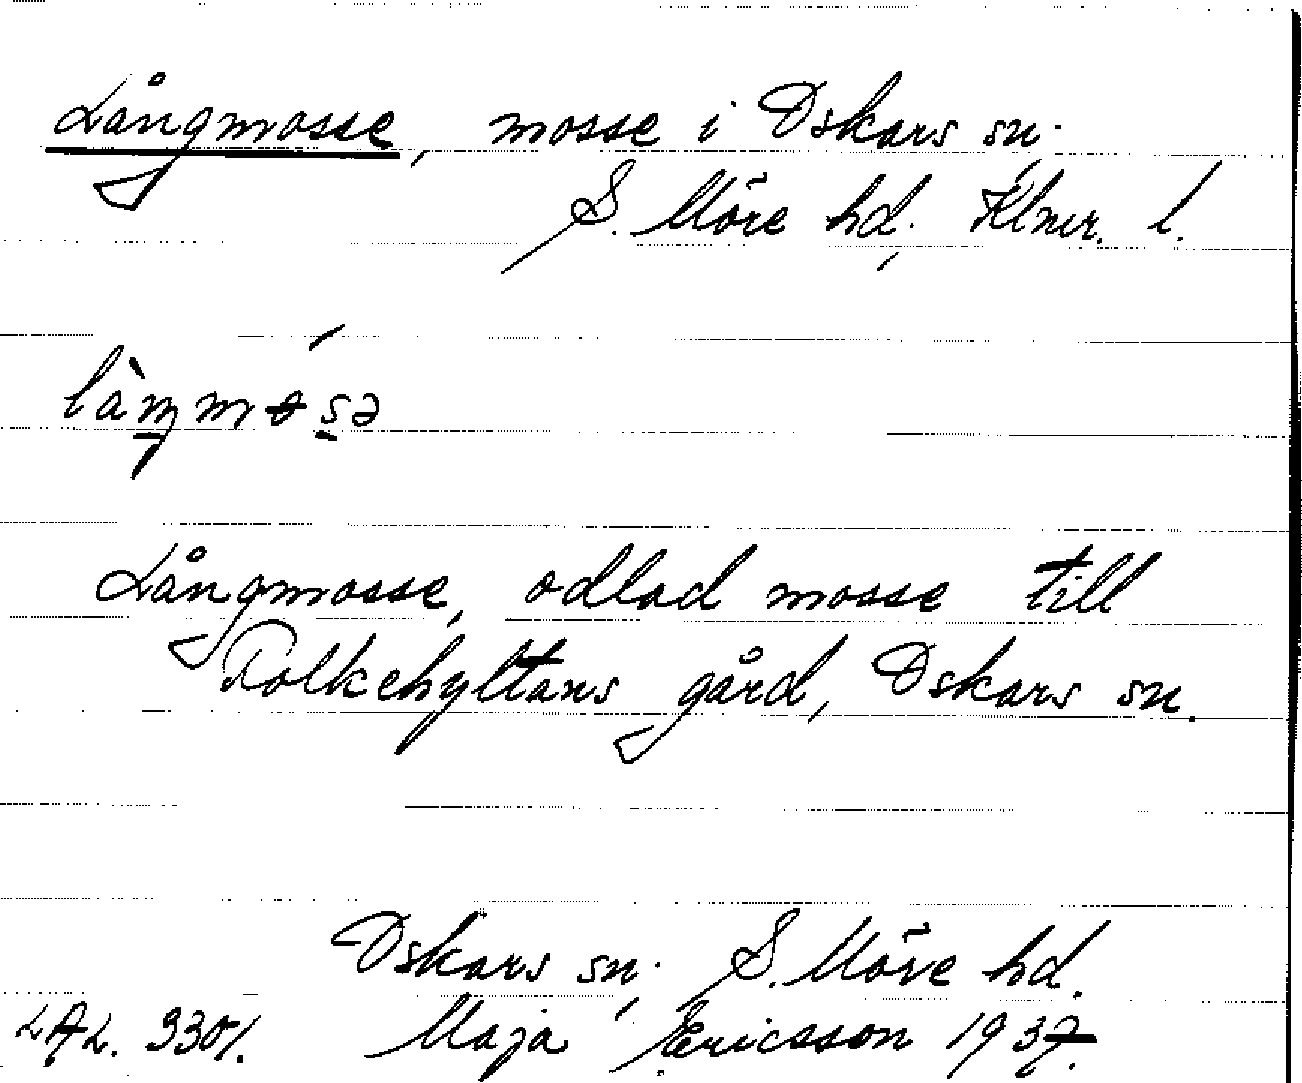 Långmosse, mosse i Oskars sn.
S. Möre hd. Klmr. l.
Långmosse, odlad mosse till
Folkehyltans gård, Oskars sn.
Oskars sn. S. Möre hd.
LAL. Maja Ericsson 1937.